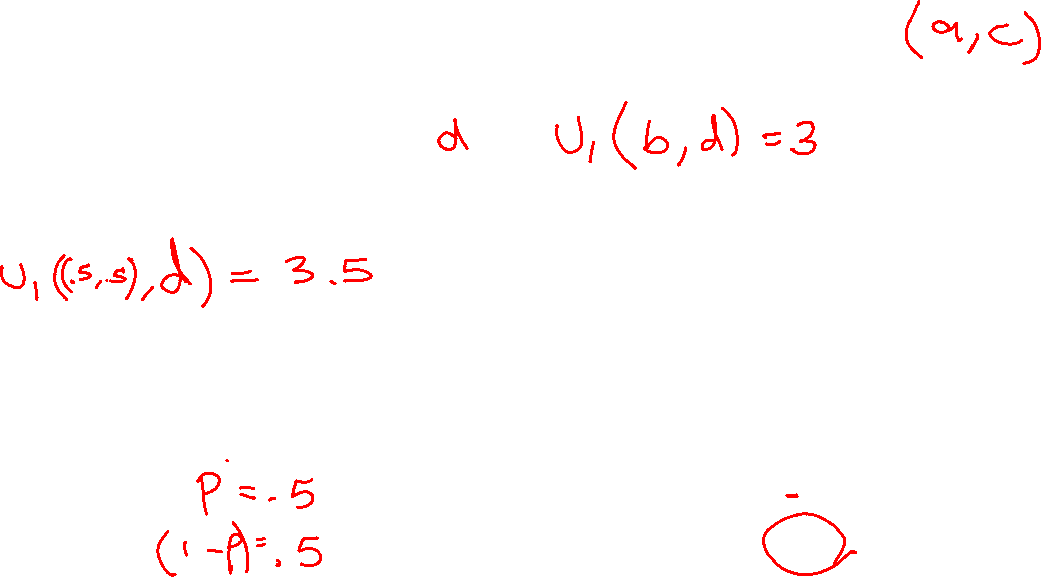 (a,c)
d U₁(b,d)=3
U₁((.5,.5),d) = 3.5
P=.5
(1-P)=.5